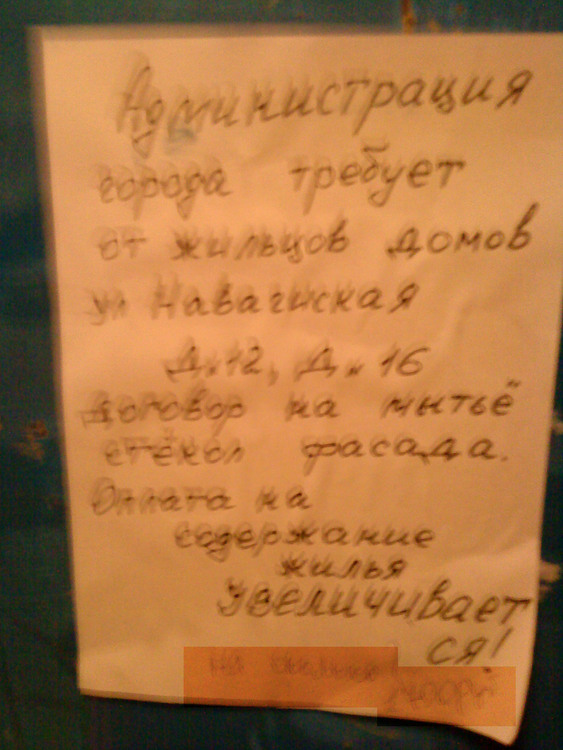 Администрация
города требует
от жильцов домов
ул Навагинская
Д.12, Д.16
договор на мытьё
стёкол фасада.
Оплата на
содержание
жилья
Увеличивает
ся!
на